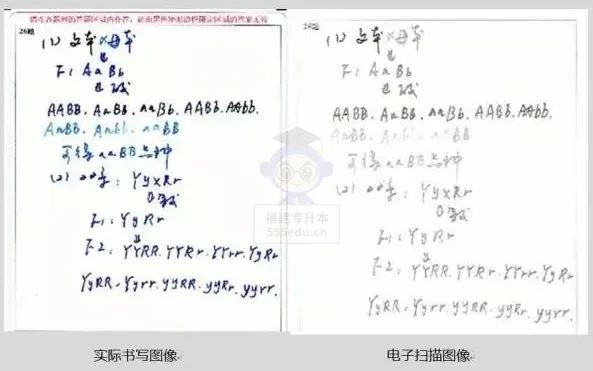 请在各题目的答题区域内作答，超出黑色矩形边框限定区域的答案无效
26题
(1) 父本×母本
↓
F1 AaBb
↓
AABB. AaBB. aaBb. AABb. AAbb.
AaBB. Aabb. aaBB
可得 aaBB 品种
(2) : YyxRr
F1: YyRr
F2: YYRR. YYRr. YYrr. YyRr
YyRR. Yyrr. yyRR. yyRr. yyrr.
实际书写图像
26题
(1) 父本×母本
↓
F1 AaBb
↓
AABB. AaBB. aaBb. AABb. AAbb.
AaBB. Aabb. aaBB
可得 aaBB 品种
(2) : YyxRr
F1: YyRr
F2: YYRR. YYRr. YYrr. YyRr
YyRR. Yyrr. yyRR. yyRr. yyrr.
电子扫描图像
福建专升本
555edu.cn